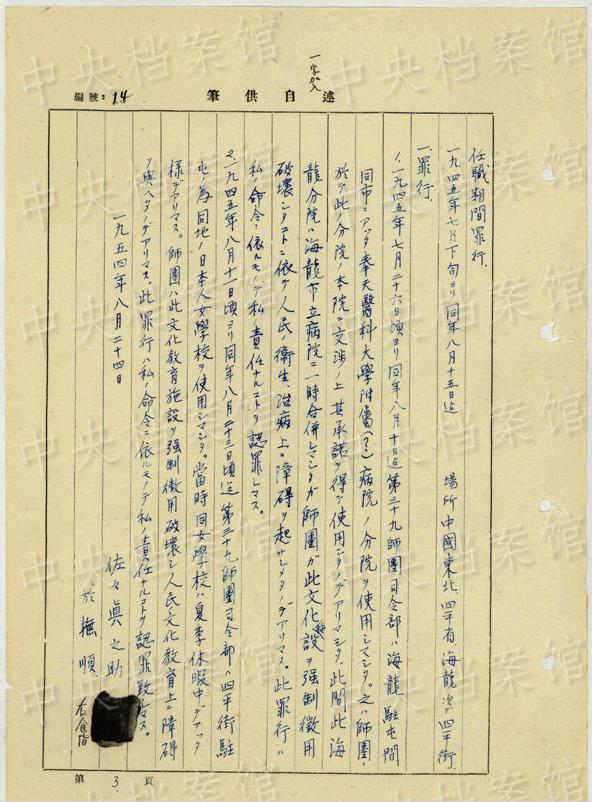 述自供筆
編號：14
一字加入
任職期間罪行
一九四五年七月下旬ヨリ同年八月十五日迄　場所 中國東北、四平省、海龍次デ四平街.
一、罪行.
1、一九四五年七月二十六日頃ヨリ同年八月十日迄第三十九師團司令部ハ海龍駐屯間
同市ニアッタ奉天醫科大學附属(?)病院ノ分院ヲ使用シマシタ。之ハ師團
於テ此ノ分院ノ本院ニ交渉ノ上其承諾ヲ得テ使用シタノデアリマシタ.此間此海
龍分院ハ海龍市立病院ニ一時合併シマシタガ師團ガ此文化施設ヲ強制徴用
破壊シタコトニ依リ人民ノ衛生、治病上ニ障碍ヲ起サシメタノデアリマス。此罪行ハ
私ノ命令ニ依ルモノデ私ノ責任ナルコトヲ認罪シマス。
2、一九四五年八月十一日頃ヨリ同年八月二十三日頃迄第三十九師團司令部ハ四平街駐
屯ノ為同地ノ日本人女學校ヲ使用シマシタ。當時同女學校ハ夏季休暇中デアッタ
様デアリマス。師團ハ此文化教育施設ヲ強制徴用破壊シ人民文化教育上ニ障碍
ヲ與ヘタノデアリマス。此罪行ハ私ノ命令ニ依ルモノデ私ノ責任ナルコトヲ認罪致シマス。
一九五四年八月二十四日
佐々眞之助
於撫順
右食指
第 3. 頁
中央档案馆
中央档案馆
中央档案馆
中央档案馆
中央档案馆